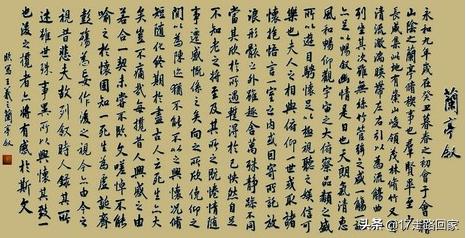 蘭亭叙
永和九年歲在癸丑暮春之初會于會稽
山陰之蘭亭脩禊事也羣賢畢至少
長咸集此地有崇山峻領茂林脩竹又有
清流激湍暎帶左右引以為流觴曲水
列坐其次雖無絲竹管弦之盛一觴一詠
亦足以暢叙幽情是日也天朗氣清惠
風和暢仰觀宇宙之大俯察品類之盛
所以遊目騁懷足以極視聽之娛信可
樂也夫人之相與俯仰一世或取諸
懷抱悟言一室之內或因寄所託放
浪形骸之外雖趣舍萬殊靜躁不同
當其欣於所遇暫得於己快然自足
不知老之將至及其所之既惓情隨
事遷感慨係之矣向之所欣俛仰之
間以為陳迹猶不能不以之興懷況脩
短隨化終期於盡古人云死生亦大
矣豈不痛哉每攬昔人興感之由
若合一契未嘗不臨文嗟悼不能
喻之於懷固知一死生為虛誕齊
彭殤為妄作後之視今亦由今之
視昔悲夫故列叙時人錄其所
述雖世殊事異所以興懷其致一
也後之攬者亦將有感於斯文
臨寫王羲之蘭亭叙
头条 @17走路回家